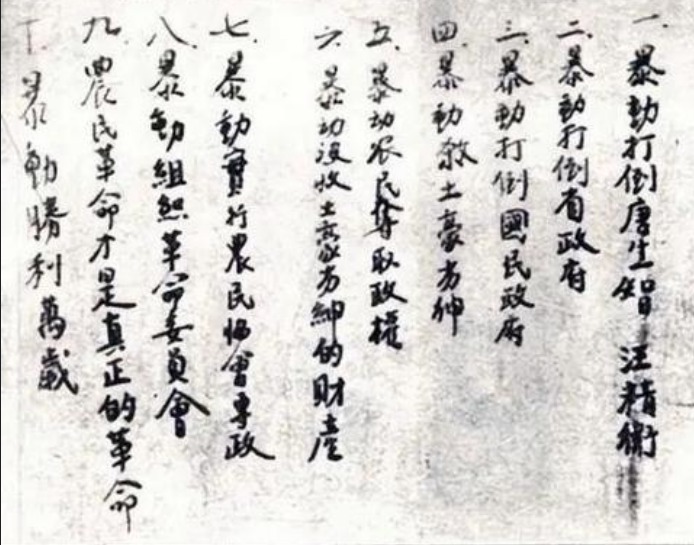 一、暴動打倒唐生智 汪精衛
二、暴動打倒省政府
三、暴動打倒國民政府
四、暴動殺土豪劣紳
五、暴动农民奪取政權
六、暴动没收土豪劣紳的財產
七、暴動實行農民協會專政
八、暴動組織革命委員會
九、農民革命才是真正的革命
十、暴動勝利萬歲